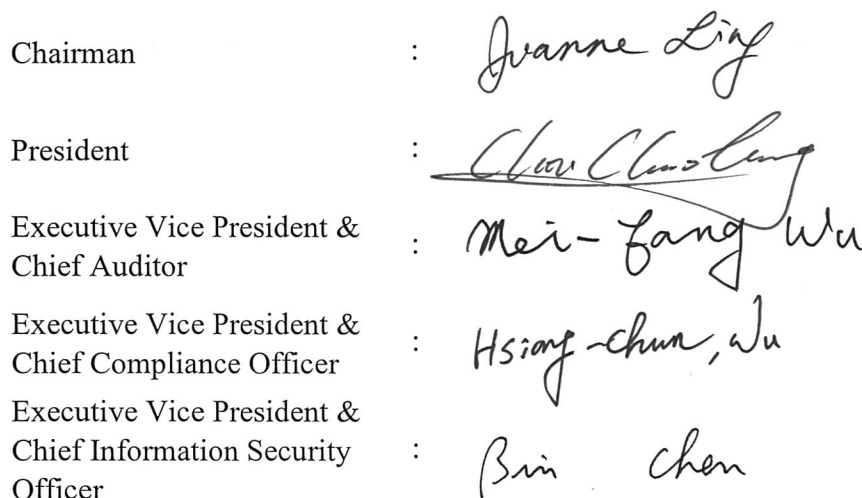 Chairman : Jvanne Ling
President :
Executive Vice President &
Chief Auditor : Mei-fang Wu
Executive Vice President &
Chief Compliance Officer : Hsiang-chun, Wu
Executive Vice President &
Chief Information Security : Bin Chen
Officer